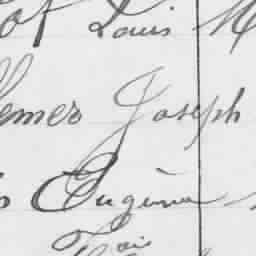 of Louis M
emer Joseph
Eugène